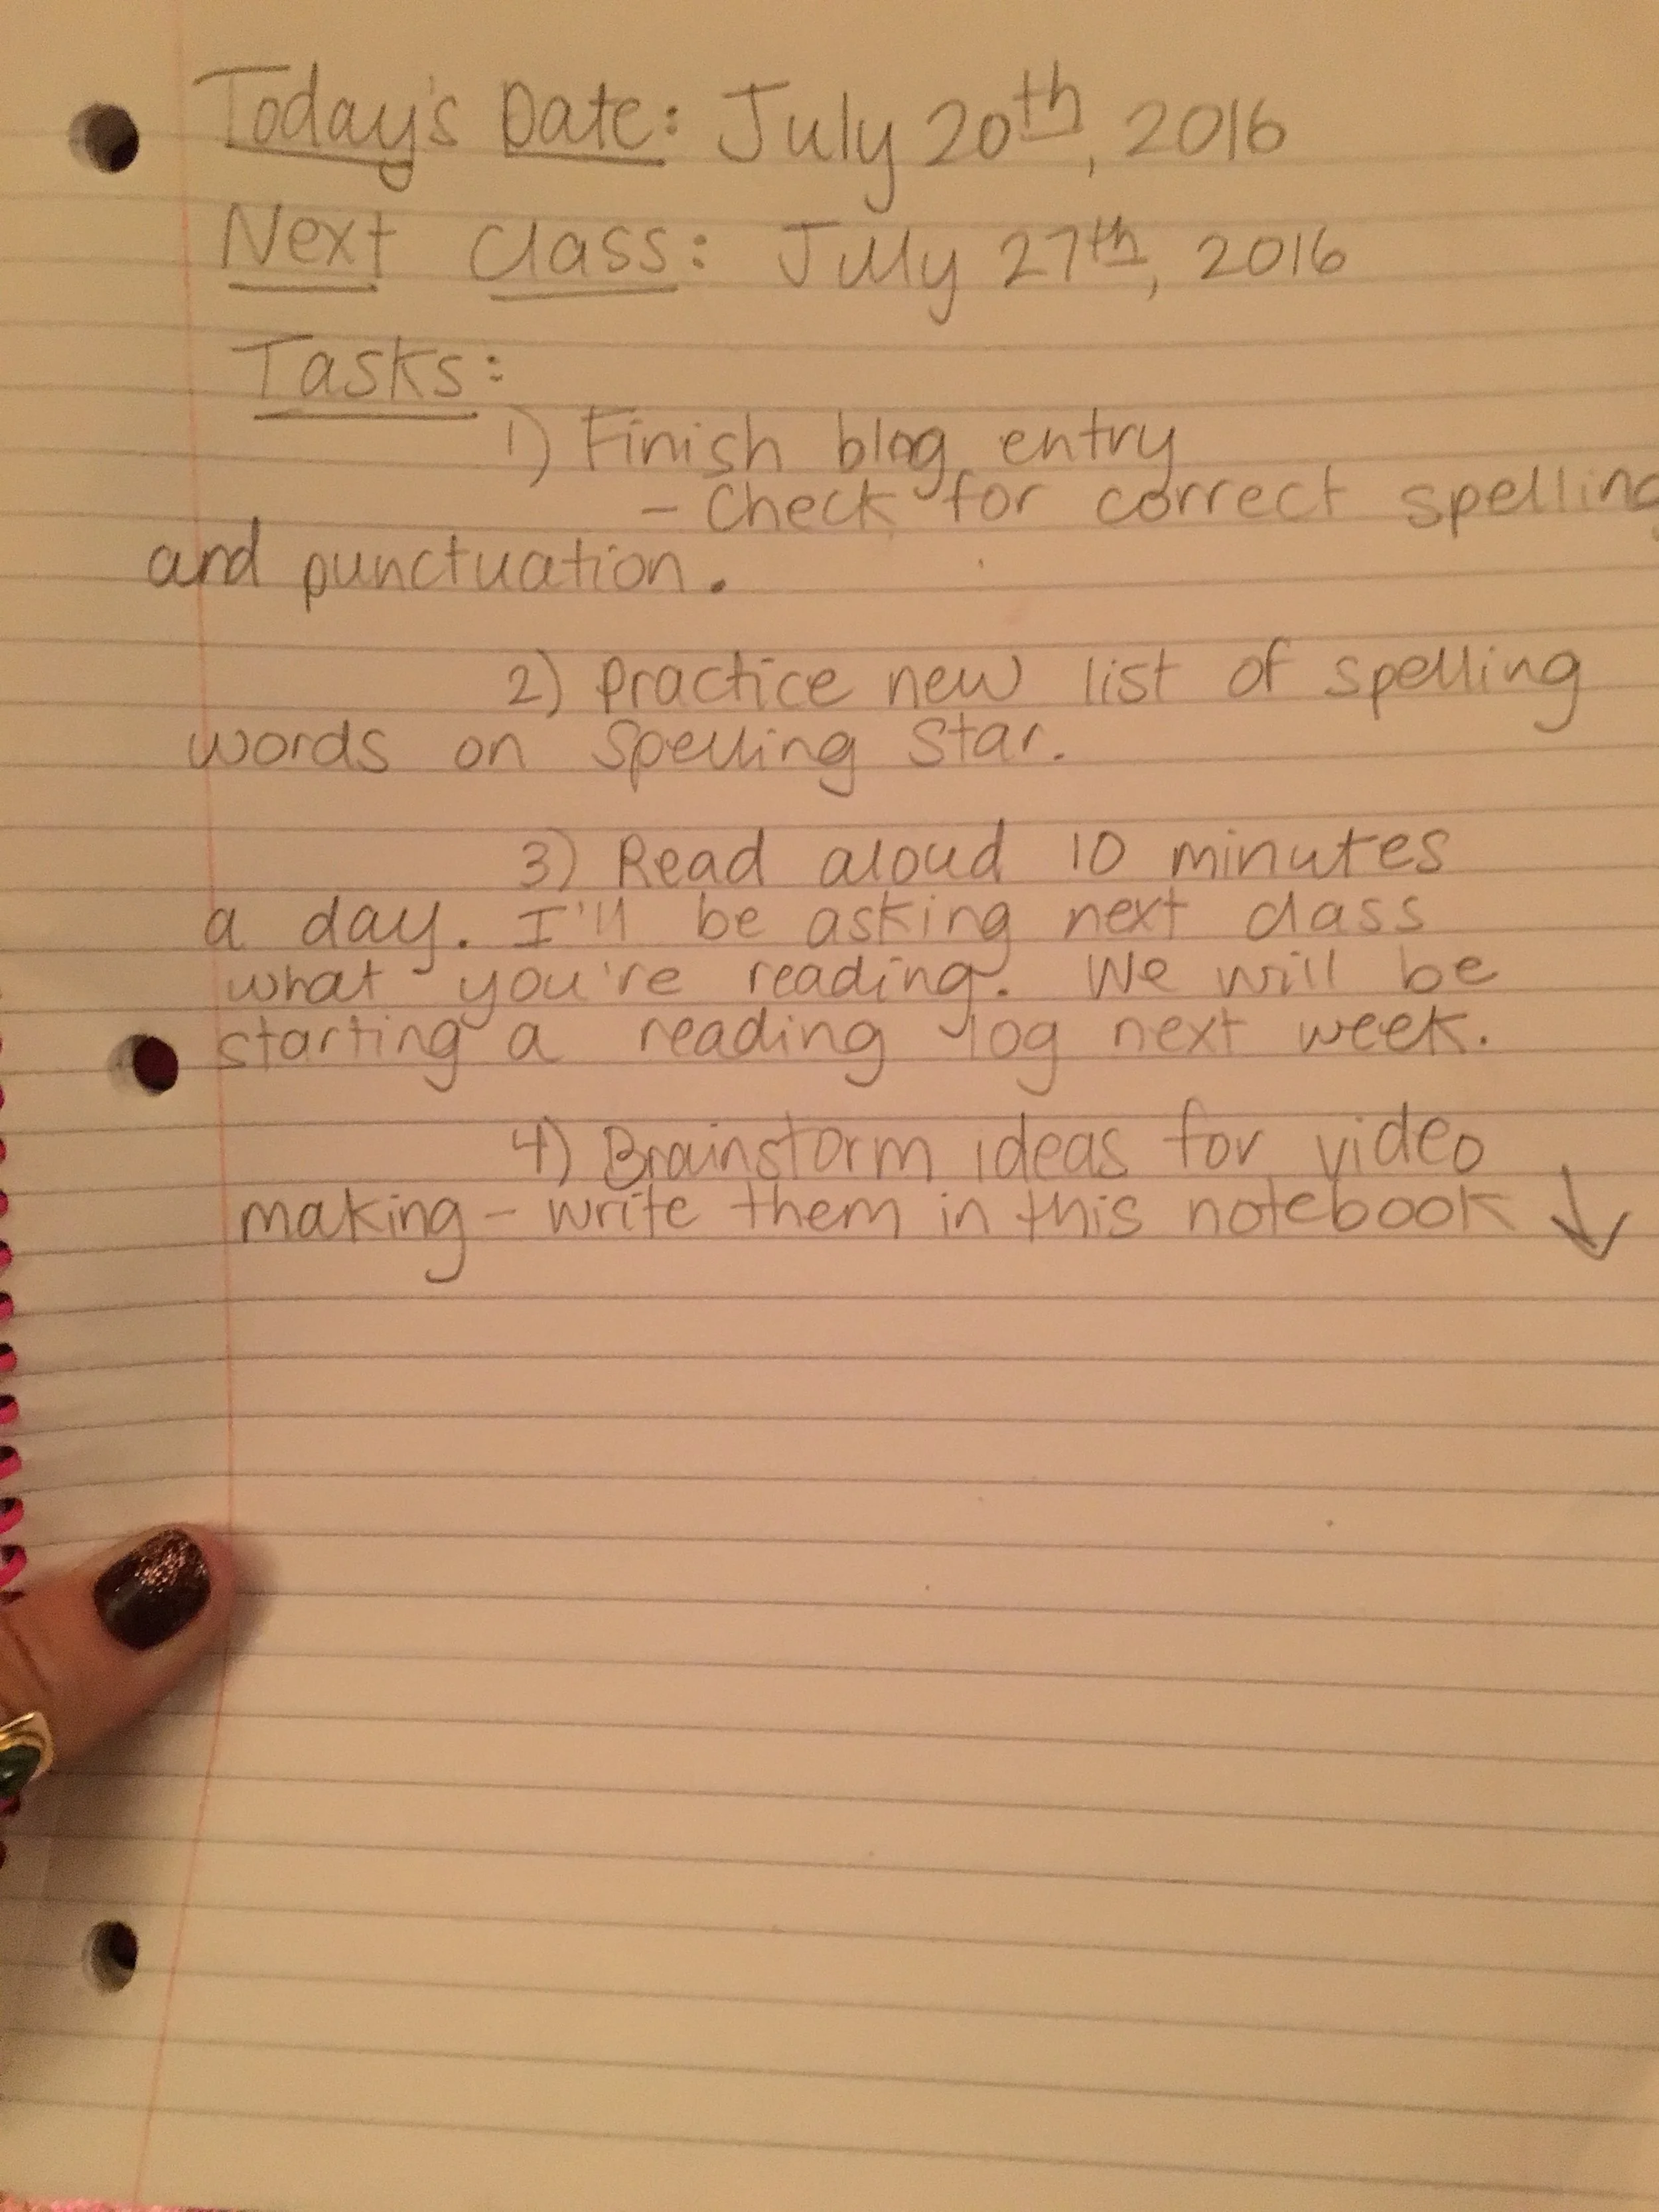 Today's Date: July 20th, 2016
Next Class: July 27th, 2016
Tasks:
1) Finish blog entry
- Check for correct spelling
and punctuation.
2) Practice new list of spelling
words on Spelling Star.
3) Read aloud 10 minutes
a day. I'll be asking next class
what you're reading. We will be
starting a reading log next week.
4) Brainstorm ideas for video
making - write them in this notebook ↓